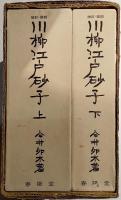 川柳江戸砂子 上
今井卯木著
春陽堂
川柳江戸砂子 下
今井卯木著
春陽堂